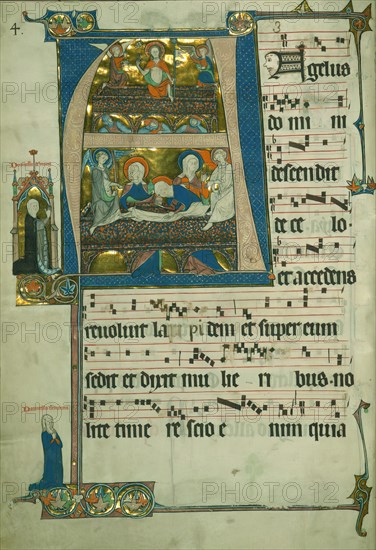 4.
3
Angelus
do mi ni
descendit
de ce lo.
et accedens
revoluit lapi dem et super eum
sedit et dixit mu lie ri bus. no
lite time re scio e nim quia